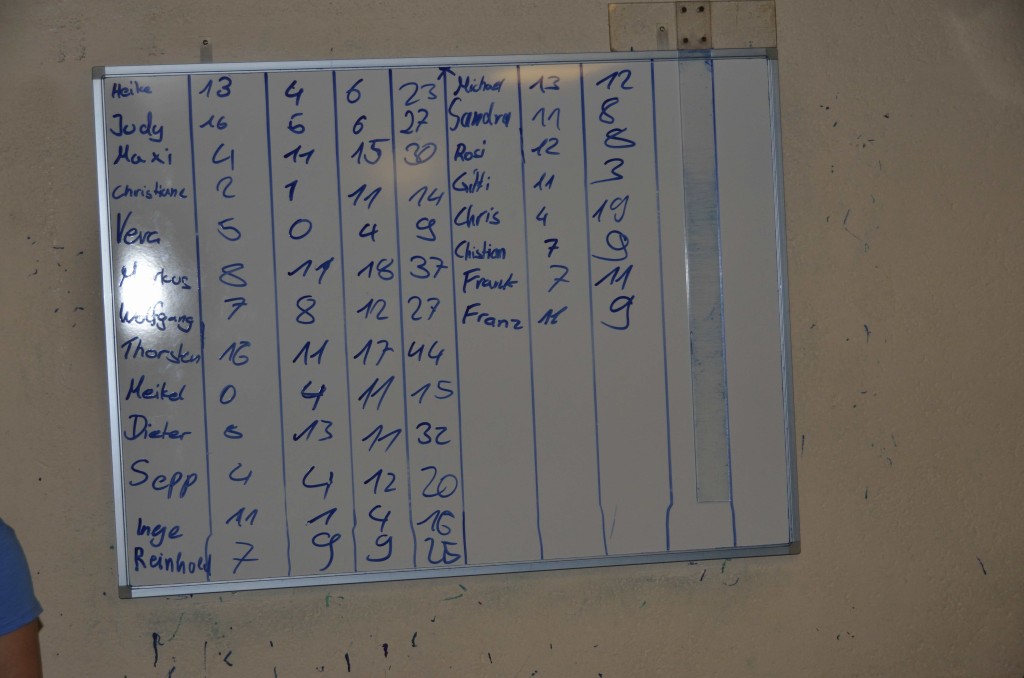 Heike 13 4 6 23
Judy 16 5 6 27
Maxi 4 11 15 30
Christiane 2 1 11 14
Vera 5 0 4 9
Markus 8 11 18 37
Wolfgang 7 8 12 27
Thorsten 16 11 17 44
Meikel 0 4 11 15
Dieter 8 13 11 32
Sepp 4 4 12 20
Inge 11 1 4 16
Reinhold 7 9 9 25
Michael 13 12
Sandra 11 8
Rosi 12 8
Gitti 11 3
Chris 4 19
Chistian 7
Frank 7 11
Franz 9